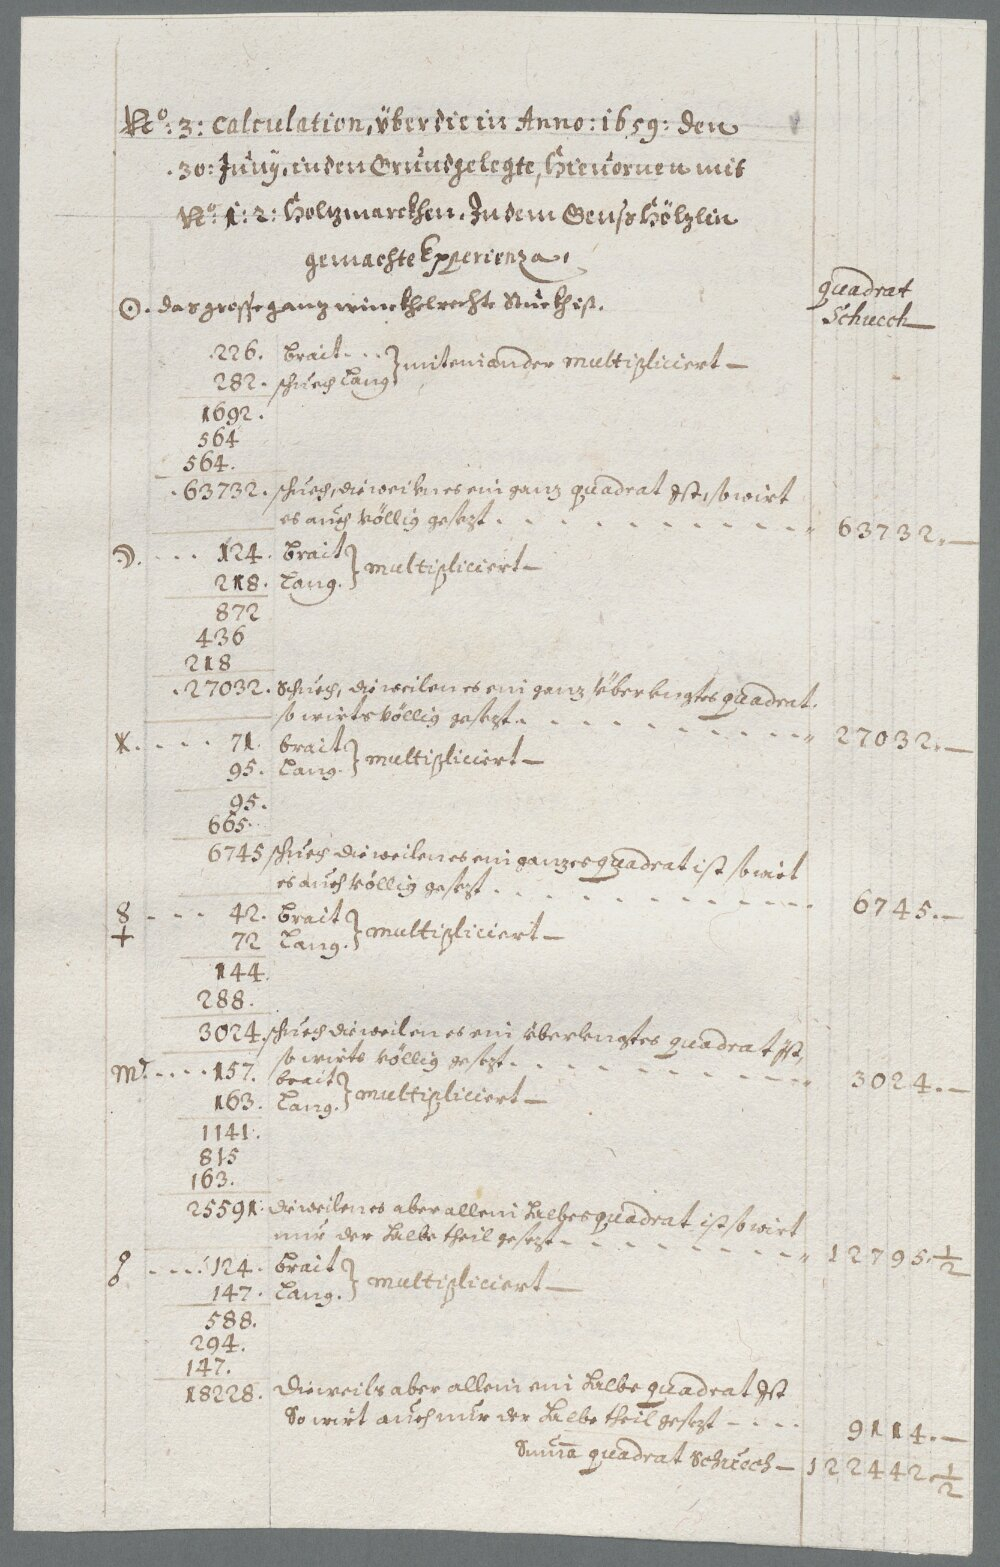 No: 3: Calculation, über die in Anno: 1659: den
.30: Juny. in den Grund gelegte, hievornen mit
No: 1: 2: Holtzmarckhen. In dem Genshölzlin
gemachte Experienza,
quadrat
Schuech
☉. das grosse ganz winckhelrechte Stuckh ist.
.226. brait. . . } miteinander multipliciert —
282. schuech lang
1692.
564
564.
.63732. schuech, dieweilen es ein ganz quadrat Ist, so wirt
es auch völlig gesezt . . . . . . . . . . . 63732. —
☽. . . . 124. brait } multipliciert —
218. Lang.
872
436
218
.27032. Schuech, dieweilen es ein ganz überlengtes quadrat.
so wirts völlig gesezt. . . . . . . . . . . 27032. —
⚹. . . . 71. brait } multipliciert —
95. Lang.
95.
665.
6745 schuech dieweilen es ein ganzes quadrat ist so wirt
es auch völlig gesezt . . . . . . . . . . . 6745. —
8 . . . 42. brait } multipliciert —
+ 72 Lang.
144.
288.
3024. schuech dieweilen es ein überlengtes quadrat Ist,
so wirts völlig gesezt. . . . . . . . . . . 3024. —
M. . . . 157. brait } multipliciert —
163. Lang.
1141.
815
163.
25591. dieweilen es aber allein halbes quadrat ist so wirt
nur der halbe theil gesezt . . . . . . . . . 12795. 1/2
. . . 124. brait } multipliciert —
147. Lang.
588.
294.
147.
18228. dieweils aber allein ein halbe quadrat Ist
So wirt auch nur der halbe theil gesezt — . . . 9114. —
Summa quadrat Schuech — 122442. 1/2